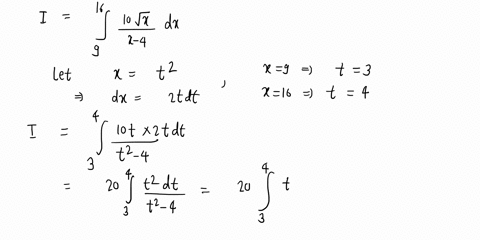 I = ∫₉¹⁶ 10√x / x-4 dx
let x = t² , x=9 => t=3
=> dx = 2tdt x=16 => t=4
I = ∫₃⁴ 10t × 2t dt / t²-4
= 20 ∫₃⁴ t² dt / t²-4 = 20 ∫₃⁴ t